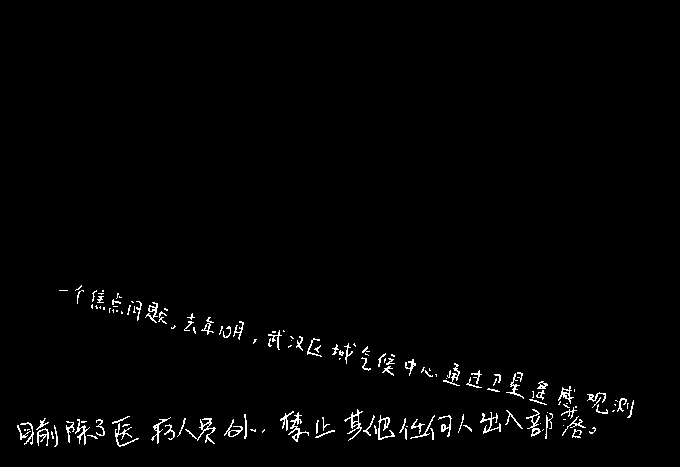 一个焦点问题。去年10月，武汉区域气候中心通过卫星遥感观测
目前除了医疗人员外，禁止其他任何人出入部落。